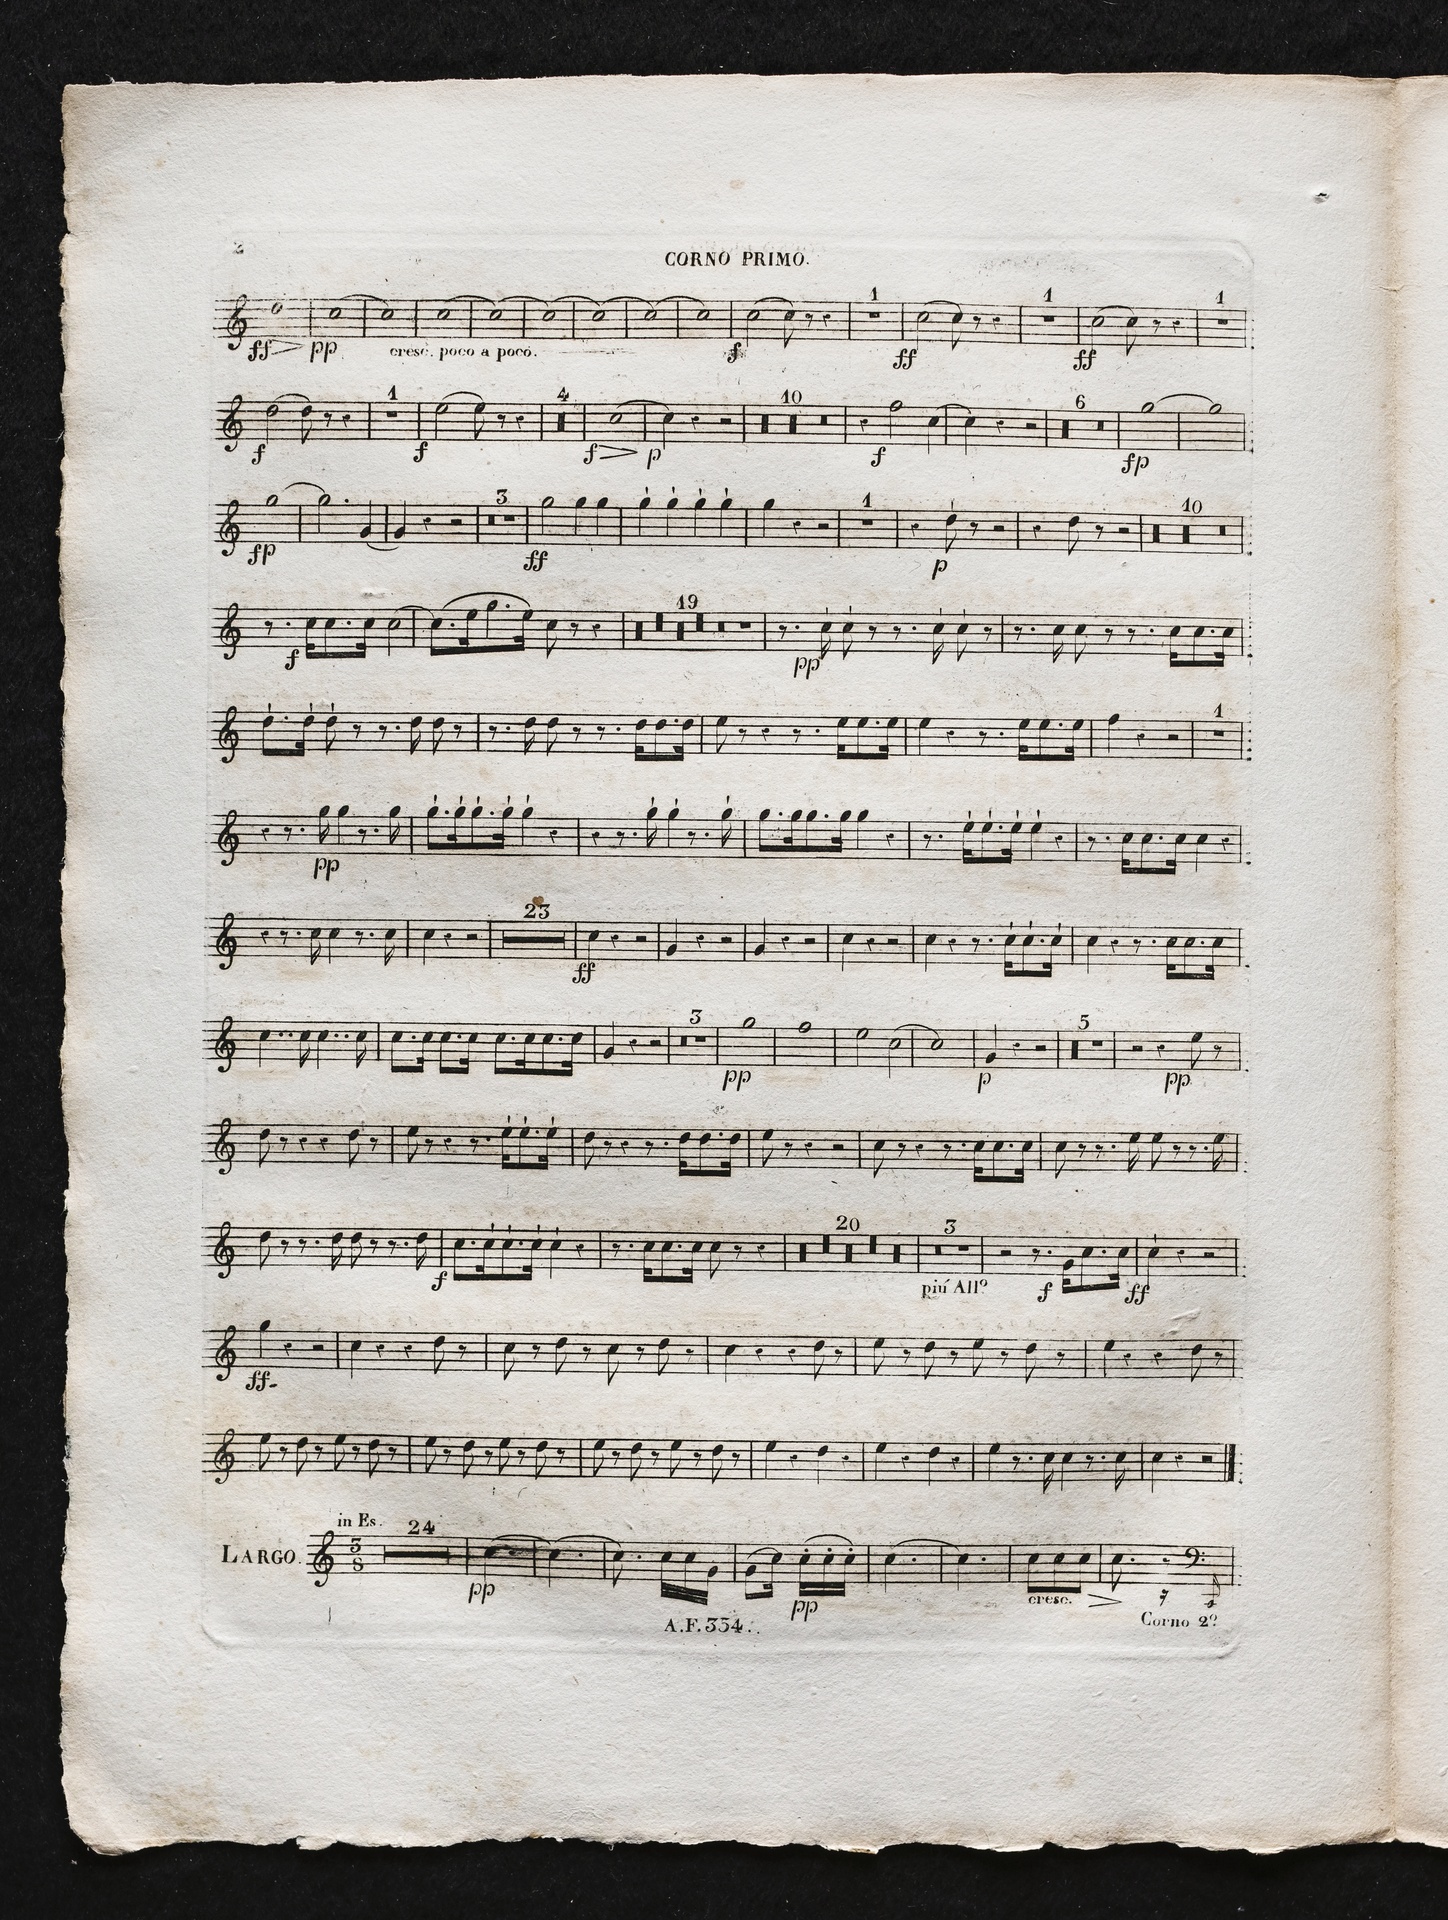 2
CORNO PRIMO.
1 1 1
ff pp cresc. poco a poco. f ff ff
1 4 10 6
f f f p f fp
3 1 10
fp ff p
19
f pp
1
pp
23
ff
3 5
pp p pp
20 3
f più Allº f ff
ff
in Es. 24
LARGO. 3
8
pp pp cresc.
Corno 2º
A.F.354.